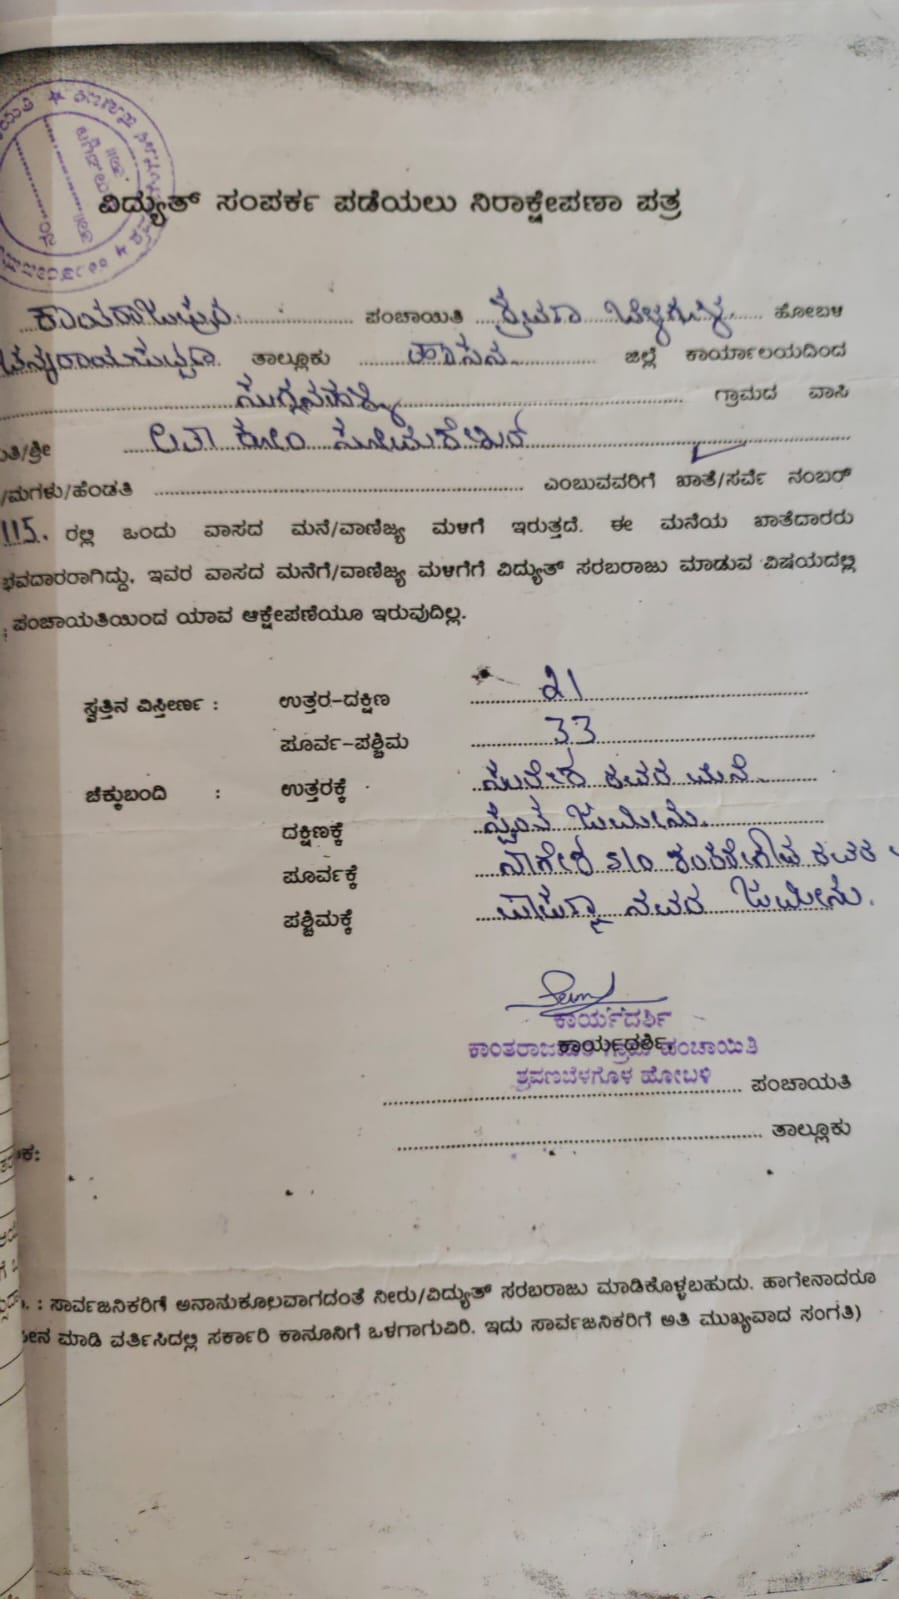 ವಿದ್ಯುತ್ ಸಂಪರ್ಕ ಪಡೆಯಲು ನಿರಾಕ್ಷೇಪಣಾ ಪತ್ರ
ಪಂಚಾಯಿತಿ ಶ್ರವಣ ಬೆಳಗೊಳ ಹೋಬಳಿ
ಚನ್ನರಾಯಪಟ್ಟಣ ತಾಲ್ಲೂಕು ಹಾಸನ ಜಿಲ್ಲೆ ಕಾರ್ಯಾಲಯದಿಂದ
ಗ್ರಾಮದ ವಾಸಿ
ಲತಾ ಕೋಂ ಸೋಮಶೇಖರ್
/ಮಗಳು/ಹೆಂಡತಿ ಎಂಬುವವರಿಗೆ ಖಾತೆ/ಸರ್ವೆ ನಂಬರ್
115. ರಲ್ಲಿ ಒಂದು ವಾಸದ ಮನೆ/ವಾಣಿಜ್ಯ ಮಳಿಗೆ ಇರುತ್ತದೆ. ಈ ಮನೆಯ ಖಾತೆದಾರರು
ಇವರ ವಾಸದ ಮನೆಗೆ/ವಾಣಿಜ್ಯ ಮಳಿಗೆಗೆ ವಿದ್ಯುತ್ ಸರಬರಾಜು ಮಾಡುವ ವಿಷಯದಲ್ಲಿ
ಪಂಚಾಯತಿಯಿಂದ ಯಾವ ಆಕ್ಷೇಪಣೆಯೂ ಇರುವುದಿಲ್ಲ.
ಸ್ವತ್ತಿನ ವಿಸ್ತೀರ್ಣ : ಉತ್ತರ-ದಕ್ಷಿಣ 21
ಪೂರ್ವ-ಪಶ್ಚಿಮ 33
ಚೆಕ್ಕುಬಂದಿ : ಉತ್ತರಕ್ಕೆ ಸುರೇಶ ರವರ ಮನೆ
ದಕ್ಷಿಣಕ್ಕೆ ಸ್ವಂತ ಜಮೀನು.
ಪೂರ್ವಕ್ಕೆ ನಾಗೇಶ S/O ರವರ
ಪಶ್ಚಿಮಕ್ಕೆ ನವರ ಜಮೀನು.
ಕಾರ್ಯದರ್ಶಿ
ಕಾರ್ಯದರ್ಶಿ,
ಪಂಚಾಯಿತಿ
ಶ್ರವಣಬೆಳಗೊಳ ಹೋಬಳಿ
ಪಂಚಾಯತಿ
ತಾಲ್ಲೂಕು
: ಸಾರ್ವಜನಿಕರಿಗೆ ಅನಾನುಕೂಲವಾಗದಂತೆ ನೀರು/ವಿದ್ಯುತ್ ಸರಬರಾಜು ಮಾಡಿಕೊಳ್ಳಬಹುದು. ಹಾಗೇನಾದರೂ
ಮಾಡಿ ವರ್ತಿಸಿದಲ್ಲಿ ಸರ್ಕಾರಿ ಕಾನೂನಿಗೆ ಒಳಗಾಗುವಿರಿ. ಇದು ಸಾರ್ವಜನಿಕರಿಗೆ ಅತಿ ಮುಖ್ಯವಾದ ಸಂಗತಿ)